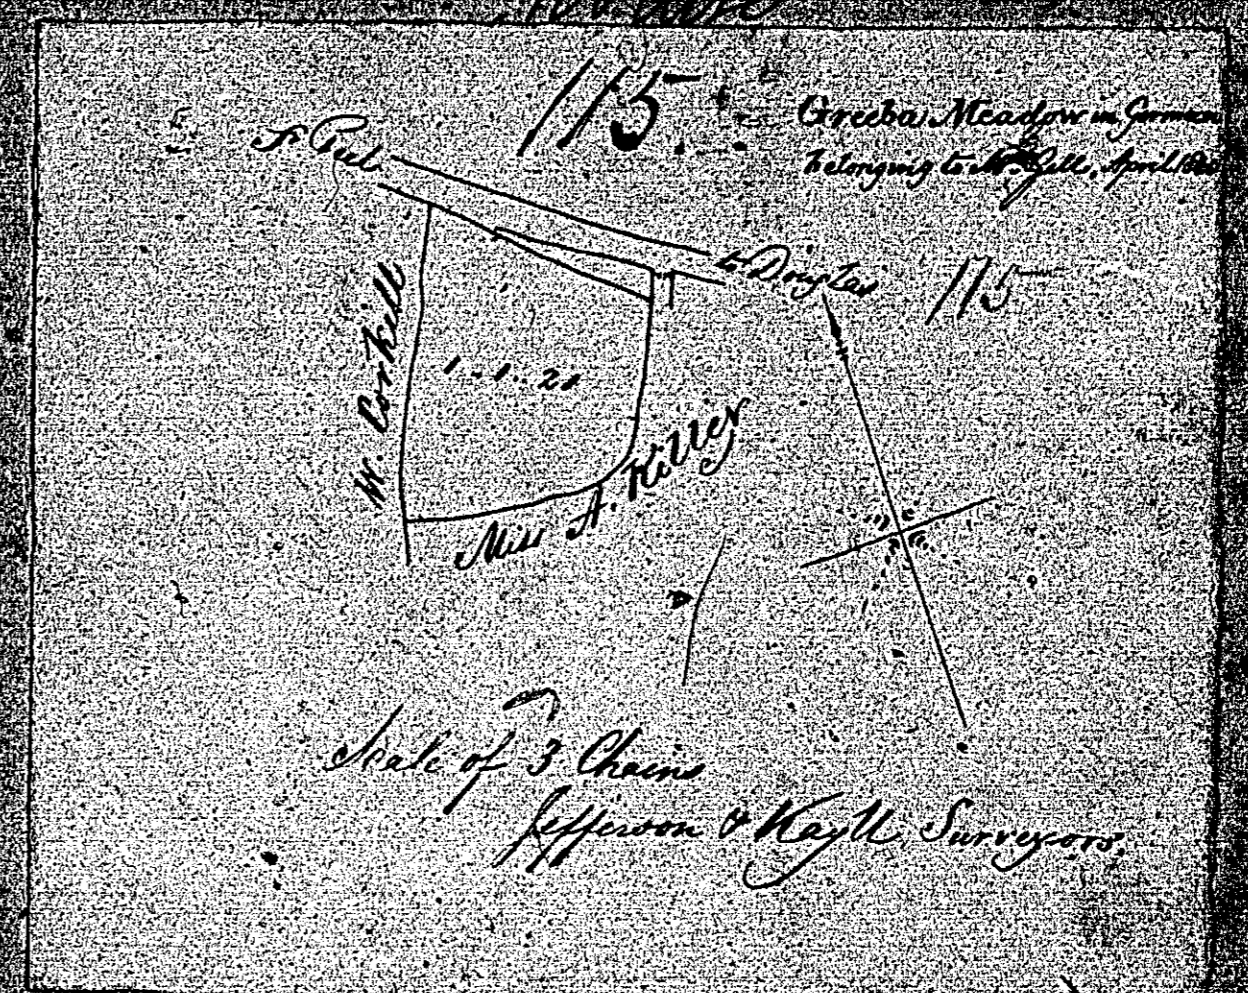 115
Greeba Meadow in German
belonging to Mr. Gell, April
Peel
to Douglas
115
W. Corkill
1..1..21
Miss A. Killey
Scale of 3 Chains
Jefferson & Kayll, Surveyors.